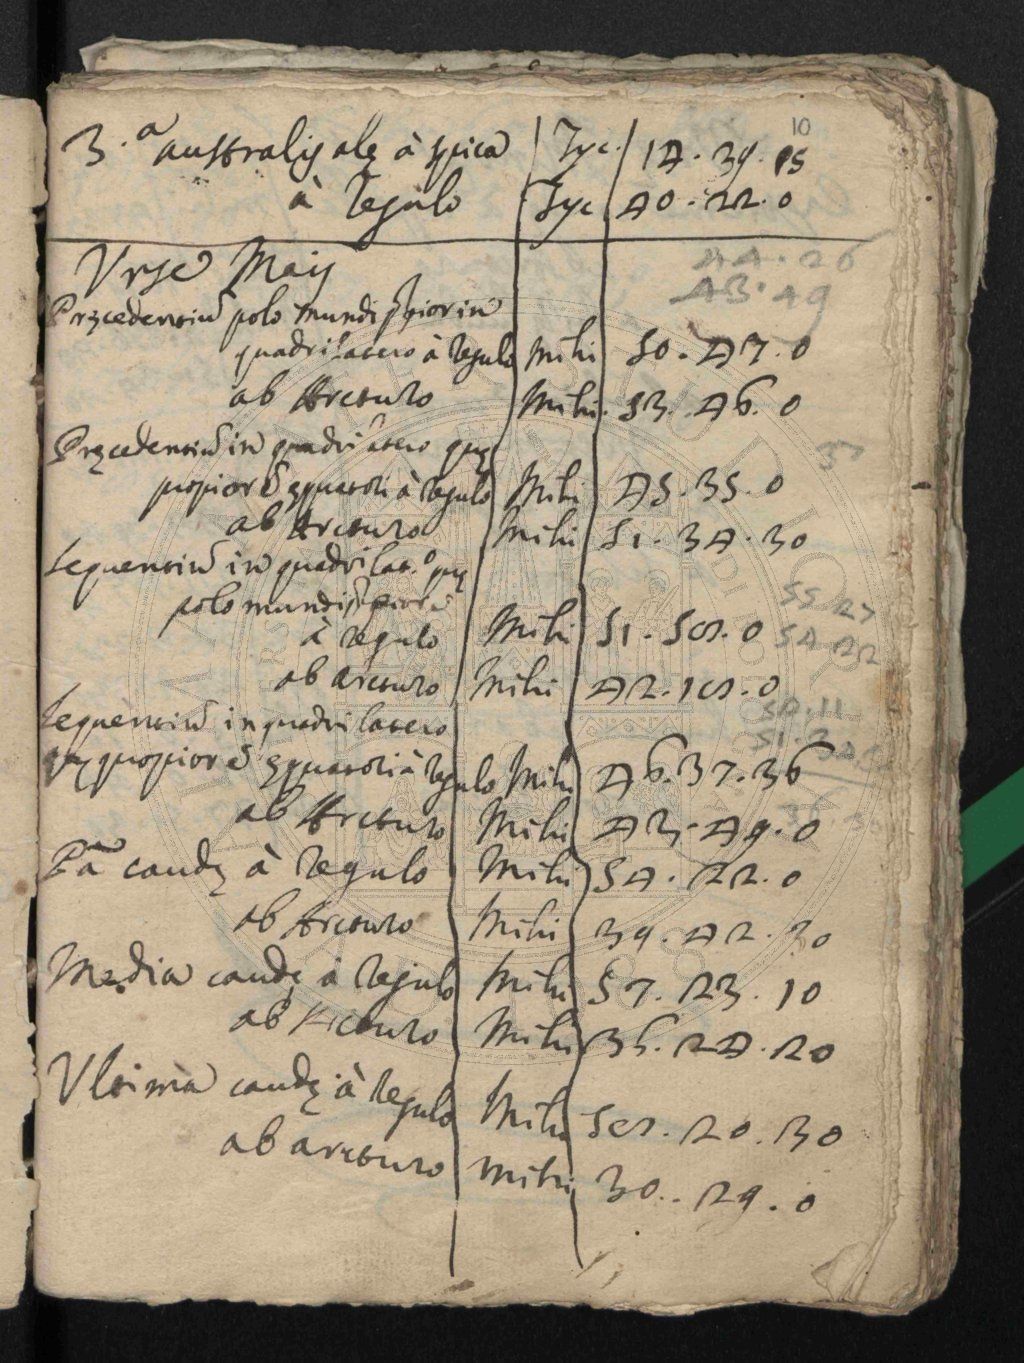 10
3.a australis alę à spica Tyc. 14.39.15
à Regulo Tyc 40.22.0
Vrsę Maij
44.26
43.49
Pręcedentiũ polo mundi ppioris in
quadrilatero à Regulo Mihi 50.47.0
ab Arcturo Mihi. 53.46.0
Pręcedentiũ in quadrilatero quę
37
propiorẽ ęquatori à Regulo Mihi 45.35.0
ab Arcturo Mihi 51.34.30
Sequentiũ in quadrilat.o quę
polo mundi ppiorẽ
55 27
à Regulo Mihi 51.58.0
54 22
ab Arcturo Mihi 42.18.0
54.11
Sequentiũ in quadrilatero
quę propiorẽ ęquatori à Regulo Mihi 46.37.36
ab Arcturo Mihi 43.49.0
Pã caudę à Regulo Mihi 54.22.0
ab Arcturo Mihi 39.42.30
Media caudę à Regulo Mihi 57.23.10
ab Arcturo Mihi 36.24.20
Vltima caudę à Regulo Mihi 58.20.30
ab arcturo Mihi 30..29.0